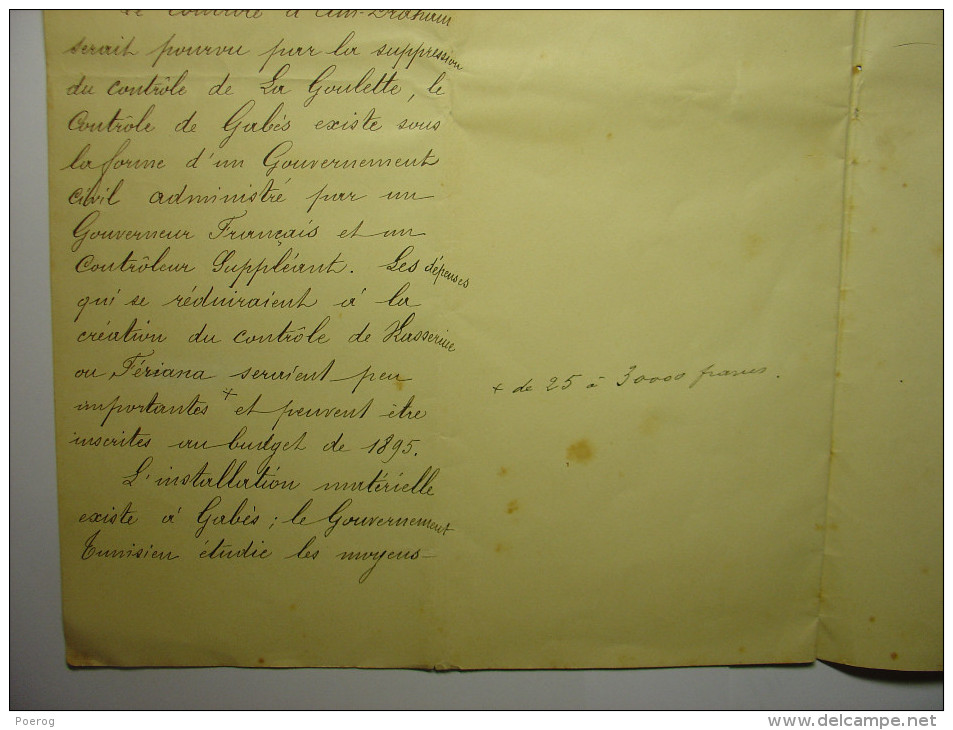 Le Contrôle d'Ain-Draham
serait pourvu par la suppression
du contrôle de La Goulette, le
Contrôle de Gabès existe sous
la forme d'un Gouvernement
civil administré par un
Gouverneur Français et un
Contrôleur Suppléant. Les dépenses
qui se réduiraient à la
création du contrôle de Kasserine
ou Fériana seraient peu
importantes + et peuvent être
inscrites au budget de 1895.
L'installation matérielle
existe à Gabès ; le Gouvernement
Tunisien étudie les moyens
+ de 25 à 30000 francs.
Poerog
www.delcampe.net